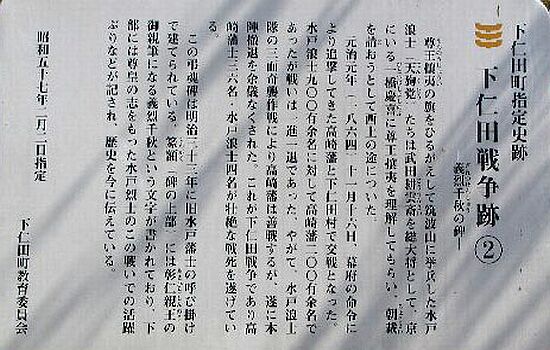 下仁田町指定史跡
下仁田戦争跡②
―義烈千秋の碑―
尊王攘夷の旗をひるがえして筑波山に挙兵した水戸
浪士(天狗党)たちは武田耕雲斎を総大将として、京
にいる一橋慶喜に尊王攘夷を理解してもらい、朝裁
を請おうとして西上の途についた。
元治元年(一八六四)十一月十六日、幕府の命令に
より追撃してきた高崎藩と下仁田村で交戦となった。
水戸浪士九〇〇有余名に対して高崎藩二〇〇有余名で
あったが戦いは一進一退であった。やがて、水戸浪士
隊の三面奇襲作戦により高崎藩は善戦するが、遂に本
陣撤退を余儀なくされた。これが下仁田戦争であり高
崎藩士三六名・水戸浪士四名が壮絶な戦死を遂げてい
る。
この弔魂碑は明治二十三年に旧水戸藩士の呼び掛け
で建てられている。篆額(碑の上部)には彰仁親王の
御親筆になる義烈千秋という文字が書かれており、下
部には尊皇の志をもった水戸烈士のこの戦いでの活躍
ぶりなどが記され、歴史を今に伝えている。
昭和五十七年二月二日指定
下仁田町教育委員会